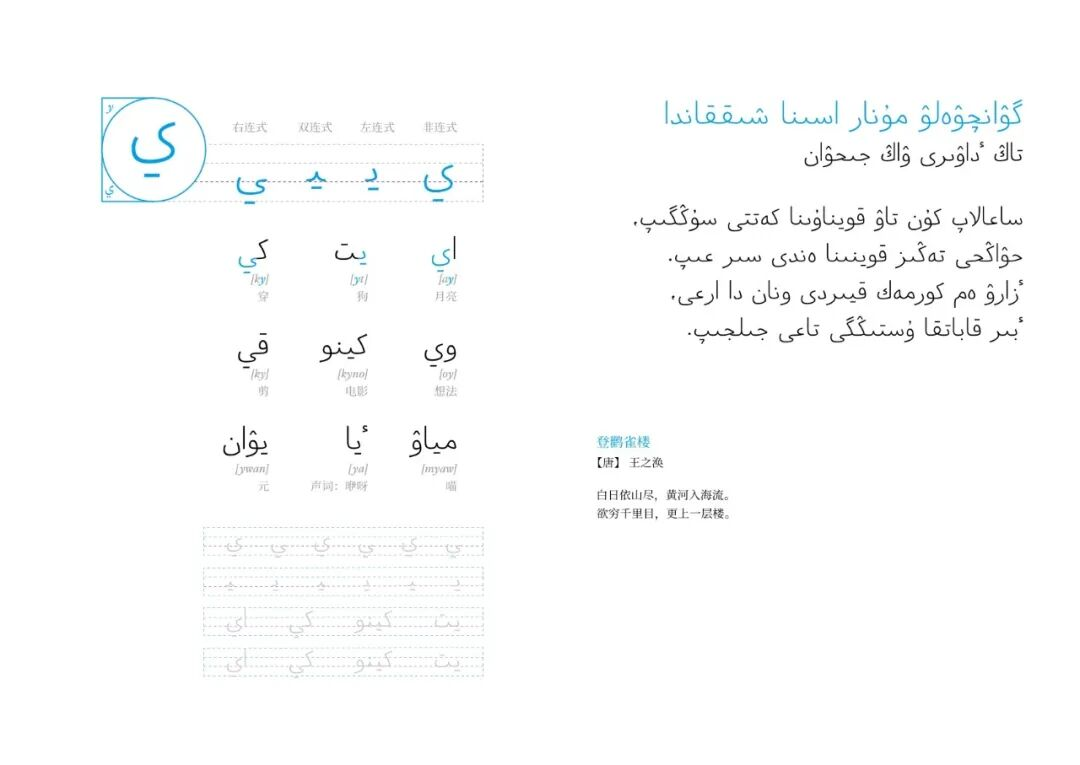 ي
右连式 双连式 左连式 非连式
ي ﻴ ﻳ ي
اي يت كي
[ay] [yt] [ky]
月亮 狗 穿
وي كينو قي
[oy] [kyno] [ky]
想法 电影 剪
مياۋ ٴيا يۋان
[myaw] [ya] [ywan]
喵 声词：咿呀 元
ي ي ي ي ي ي
ﻳ ﻴ ﻳ ﻳ ﻴ ﻴ
يت كينو كي اي
يت كينو كي اي
گۋانچۋەلۋ مۇنار اسىنا شىققاندا
تاڭ ٴداۋىرى ۋاڭ جىحۋان
ساعالاپ كۇن تاۋ قويناۋىنا كەتتى سۇڭگىپ،
حۋاڭحى تەڭىز قوينىنا ەندى سىر عىپ.
ٴزارۋ ەم كورمەك قيىردى ونان دا ارعى،
ٴبىر قاباتقا ۇستىڭگى تاعى جىلجىپ.
登鹳雀楼
【唐】 王之涣
白日依山尽，黄河入海流。
欲穷千里目，更上一层楼。